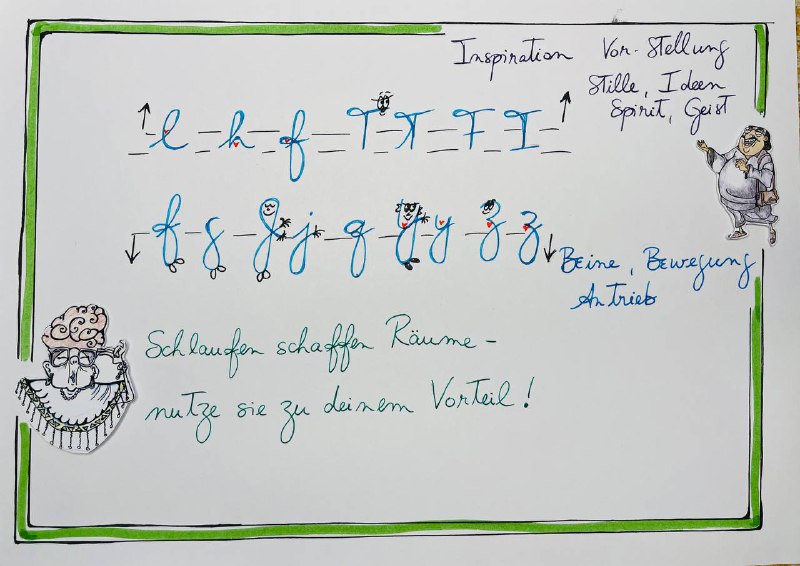 Inspiration Vor-Stellung
Stille, Ideen
Spirit, Geist
l h f T T F I
f g g j q y y z z
Beine, Bewegung
Antrieb
Schlaufen schaffen Räume –
nutze sie zu deinem Vorteil!